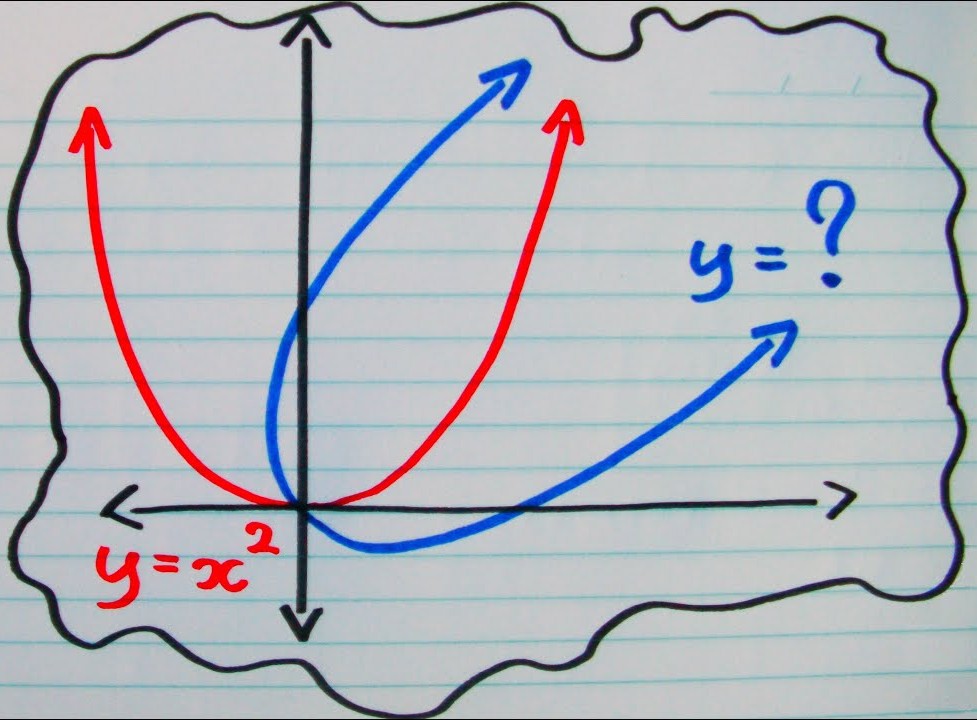 y = ?
y = x²